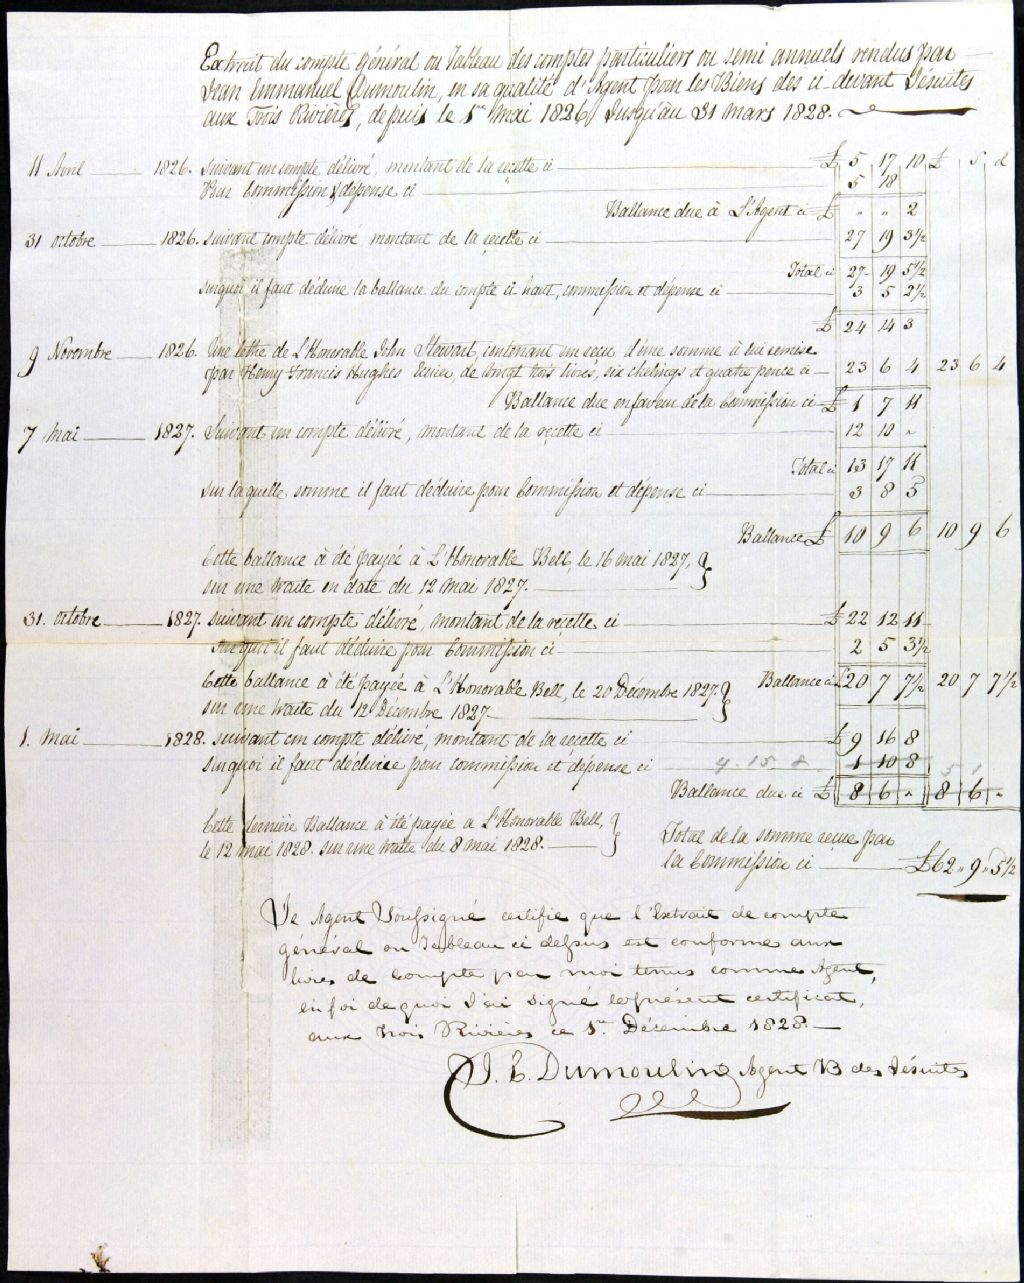 Extrait du compte général ou Tableau des comptes particuliers ou semi annuels rendus par
Jean Emmanuel Dumoulin, en sa qualité d'Agent pour les Biens des ci-devant Jésuites
aux Trois Rivières, depuis le 1er Mai 1826 Jusqu'au 31 mars 1828.
11 Avril 1826. Suivant un compte délivré, montant de la recette ci £ 5 17 10 £ s d
Par Commission & dépense ci 5 18
Ballance due à L'Agent ci £ " " 2
31 octobre 1826. suivant compte délivré montant de la recette ci 27 19 3½
Total ci 27 19 5½
surquoi il faut déduire la ballance du compte ci haut, commission et dépense ci 3 5 2½
£ 24 14 3
9 Novembre 1826. Une lettre de L'Honorable John Stewart, contenant un reçu d'une somme à lui remise
par Henry Francis Hughes Ecuier, de vingt trois livres, six chelings et quatre pence ci 23 6 4 23 6 4
Ballance due en faveur de la Commission ci £ 1 7 11
7 mai 1827. Suivant un compte délivré, montant de la recette ci 12 10 "
Total ci 13 17 11
sur laquelle somme il faut déduire pour Commission et dépense ci 3 8 5
Ballance £ 10 9 6 10 9 6
Cette ballance à été payée à L'Honorable Bell, le 16 mai 1827,
sur une traite en date du 12 mai 1827.
31. octobre 1827. suivant un compte délivré, montant de la recette ci £ 22 12 11
surquoi il faut déduire pour Commission ci 2 5 3½
Cette ballance à été payée à L'Honorable Bell, le 20 Décembre 1827. Ballance ci £ 20 7 7½ 20 7 7½
sur une traite du 12 Décembre 1827
1. mai 1828. suivant un compte délivré, montant de la recette ci £ 9 16 8
surquoi il faut déduire pour commission et dépense ci 4. 15. 8 1 10 8 5 1
Ballance due ci £ 8 6 " 8 6 "
Cette dernière Ballance à été payée à L'Honorable Bell,
le 12 mai 1828. sur une traite du 8 mai 1828.
Total de la somme reçue par
la Commission ci £62 " 9 " 5½
Je Agent Soussigné certifie que l'Extrait de compte
général ou Tableau ci dessus est conforme aux
livres de Compte par moi tenus comme Agent,
en foi de quoi J'ai signé le présent certificat,
aux Trois Rivières ce 1er Décembre 1828.
J. E. Dumoulin Agent B des Jésuites